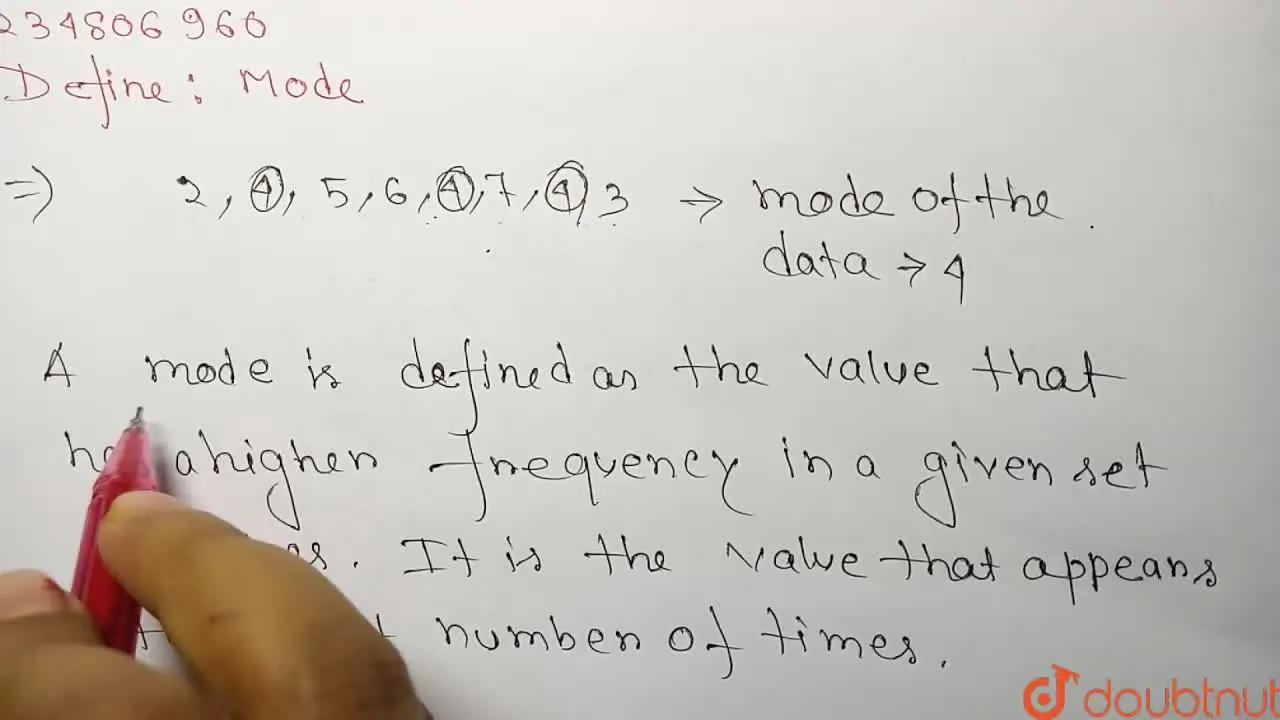 234806960
Define: Mode
=> 2, 4, 5, 6, 4, 7, 4, 3 → mode of the
data → 4
A mode is defined as the value that
a higher frequency in a given set
. It is the value that appears
number of times.
doubtnut